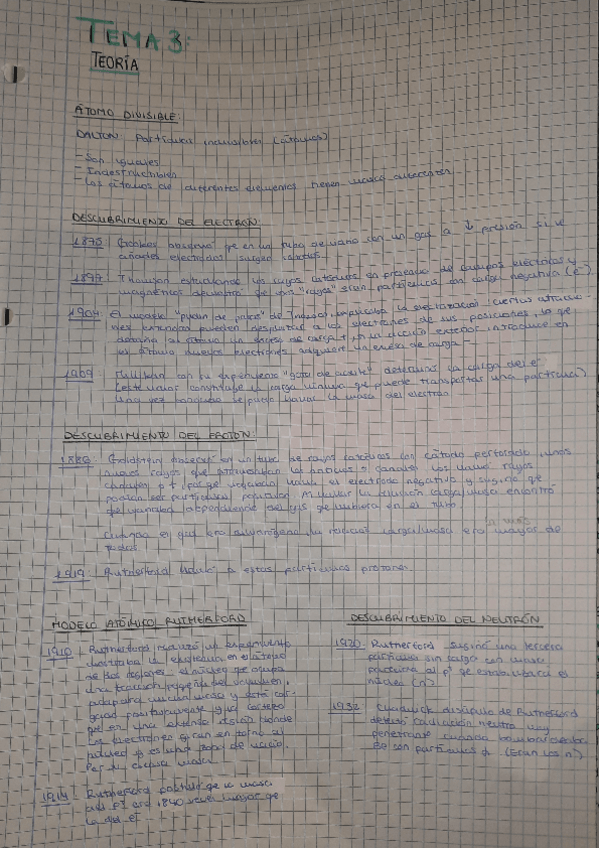 TEMA 3:
TEORÍA
ÁTOMO DIVISIBLE:
DALTON: Partículas indivisibles (átomos)
- Son iguales
- Indestructibles
- Los átomos de diferentes elementos tienen masas diferentes
DESCUBRIMIENTO DEL ELECTRÓN:
1875: observó que en un tubo de vidrio con un gas a ↓ presión si le
añades electrodos surgen rayos
1897: Thomson estudiando los rayos catódicos en presencia de campos eléctricos y
magnéticos demostró que los "rayos" eran partículas con carga negativa (e⁻)
1904: El modelo "pudin de pasas" de Thomson explicaba la electrización: ciertas
pueden a los electrones de sus posiciones, lo que
al átomo un exceso de carga + , si la acción exterior introduce en
los átomos nuevos electrones adquiere un exceso de carga -
1909: Millikan con su experimento "gota de aceite" determinó la carga del e⁻
(este valor constituye la carga mínima que puede transportar una partícula)
Una vez se pudo hallar la masa del electrón.
DESCUBRIMIENTO DEL PROTÓN:
1886: Goldstein observó en un tubo de rayos catódicos con cátodo perforado unos
nuevos rayos que atravesaban los o canales. Los llamó rayos
canales, p+, porque viajaban hacia el electrodo negativo y sugirió que
podían ser partículas positivas. Al hallar la relación carga/masa encontró
que variaba dependiendo del gas que hubiera en el tubo.
Cuando el gas era hidrógeno la relación carga/masa era la mas mayor de
todas
1919: Rutherford llamó a estas partículas protones.
MODELO ATÓMICO RUTHERFORD
1910: Rutherford realizó un experimento
la existencia en el átomo
de dos regiones, el núcleo que ocupa
una fracción pequeña del volumen,
mucha masa y está car-
gado positivamente y la corteza
que es una extensa región donde
los electrones giran en torno al
núcleo y es una zona de vacío.
1914: Rutherford postuló que la masa
del p+ era 1840 veces mayor que
la del e⁻
DESCUBRIMIENTO DEL NEUTRÓN
1920: Rutherford sugirió una tercera
partícula sin carga con masa
al p+ que
núcleo (n)
1932: Chadwick discípulo de Rutherford
detectó radiación neutra muy
penetrante cuando bombardeaba
Be con partículas α (Eran los n)